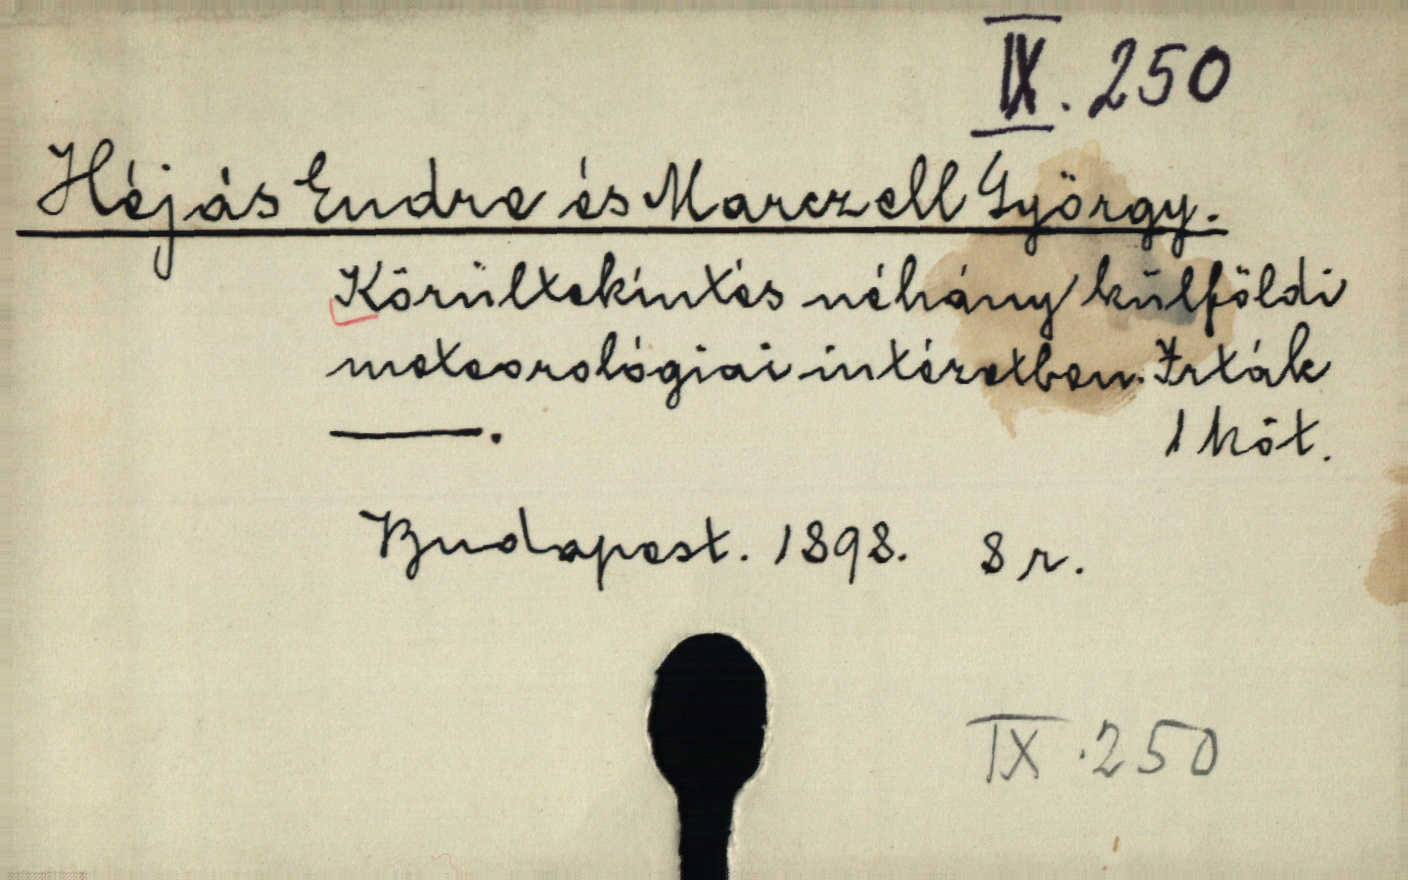 IX. 250
Héjás Endre és Marczell György.
Körültekintés néhány külföldi
meteorológiai intézetben. Irták
———.
1 köt.
Budapest. 1898. 8 r.
IX. 250